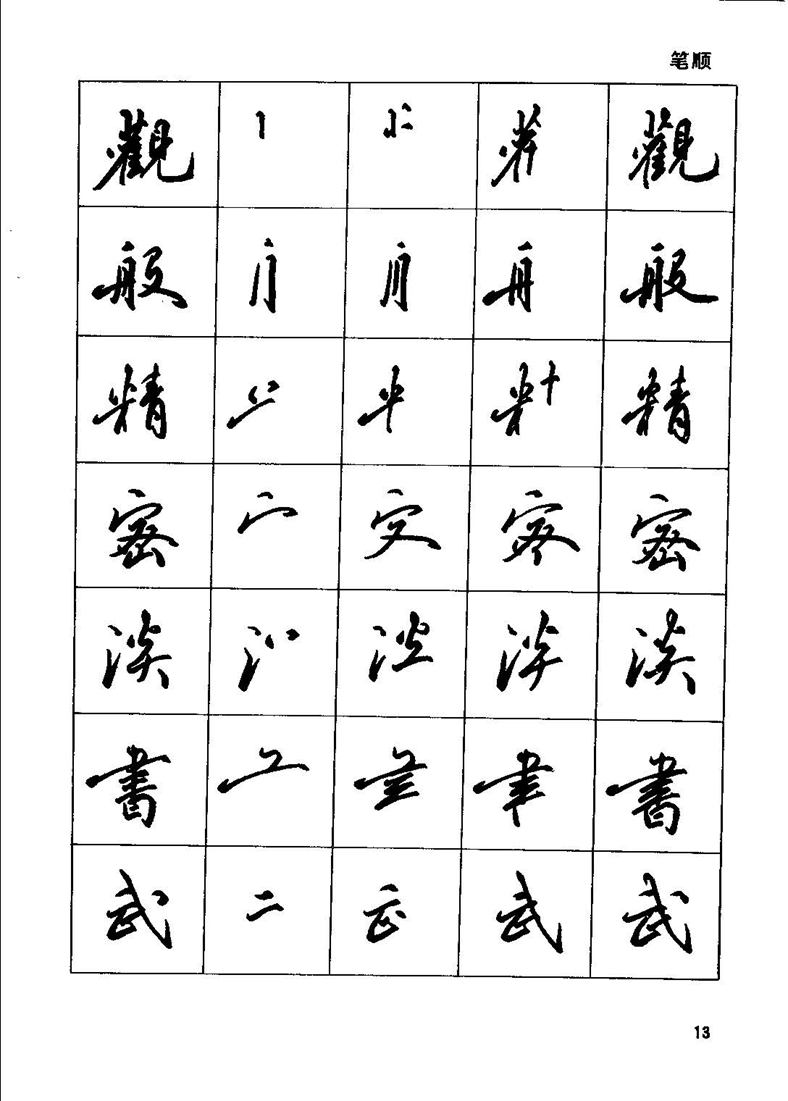 笔顺
觀 觀
般 般
精 精
密 密
淡 淡
書 書
武 二 武 武
13